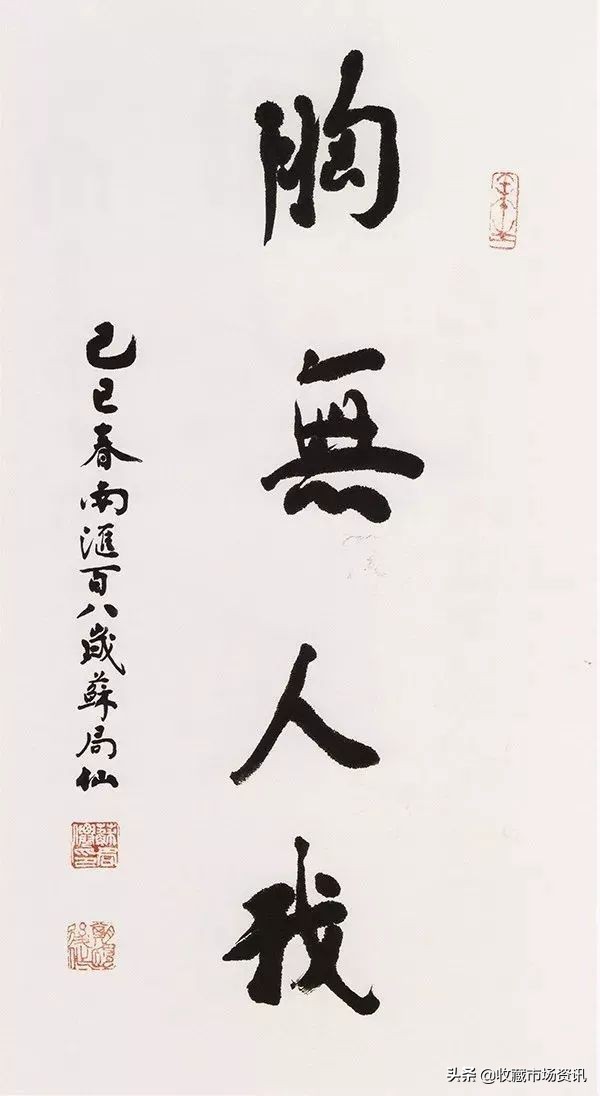 胸無人我
己巳春南滙百八歲蘇局仙
头条 @收藏市场资讯